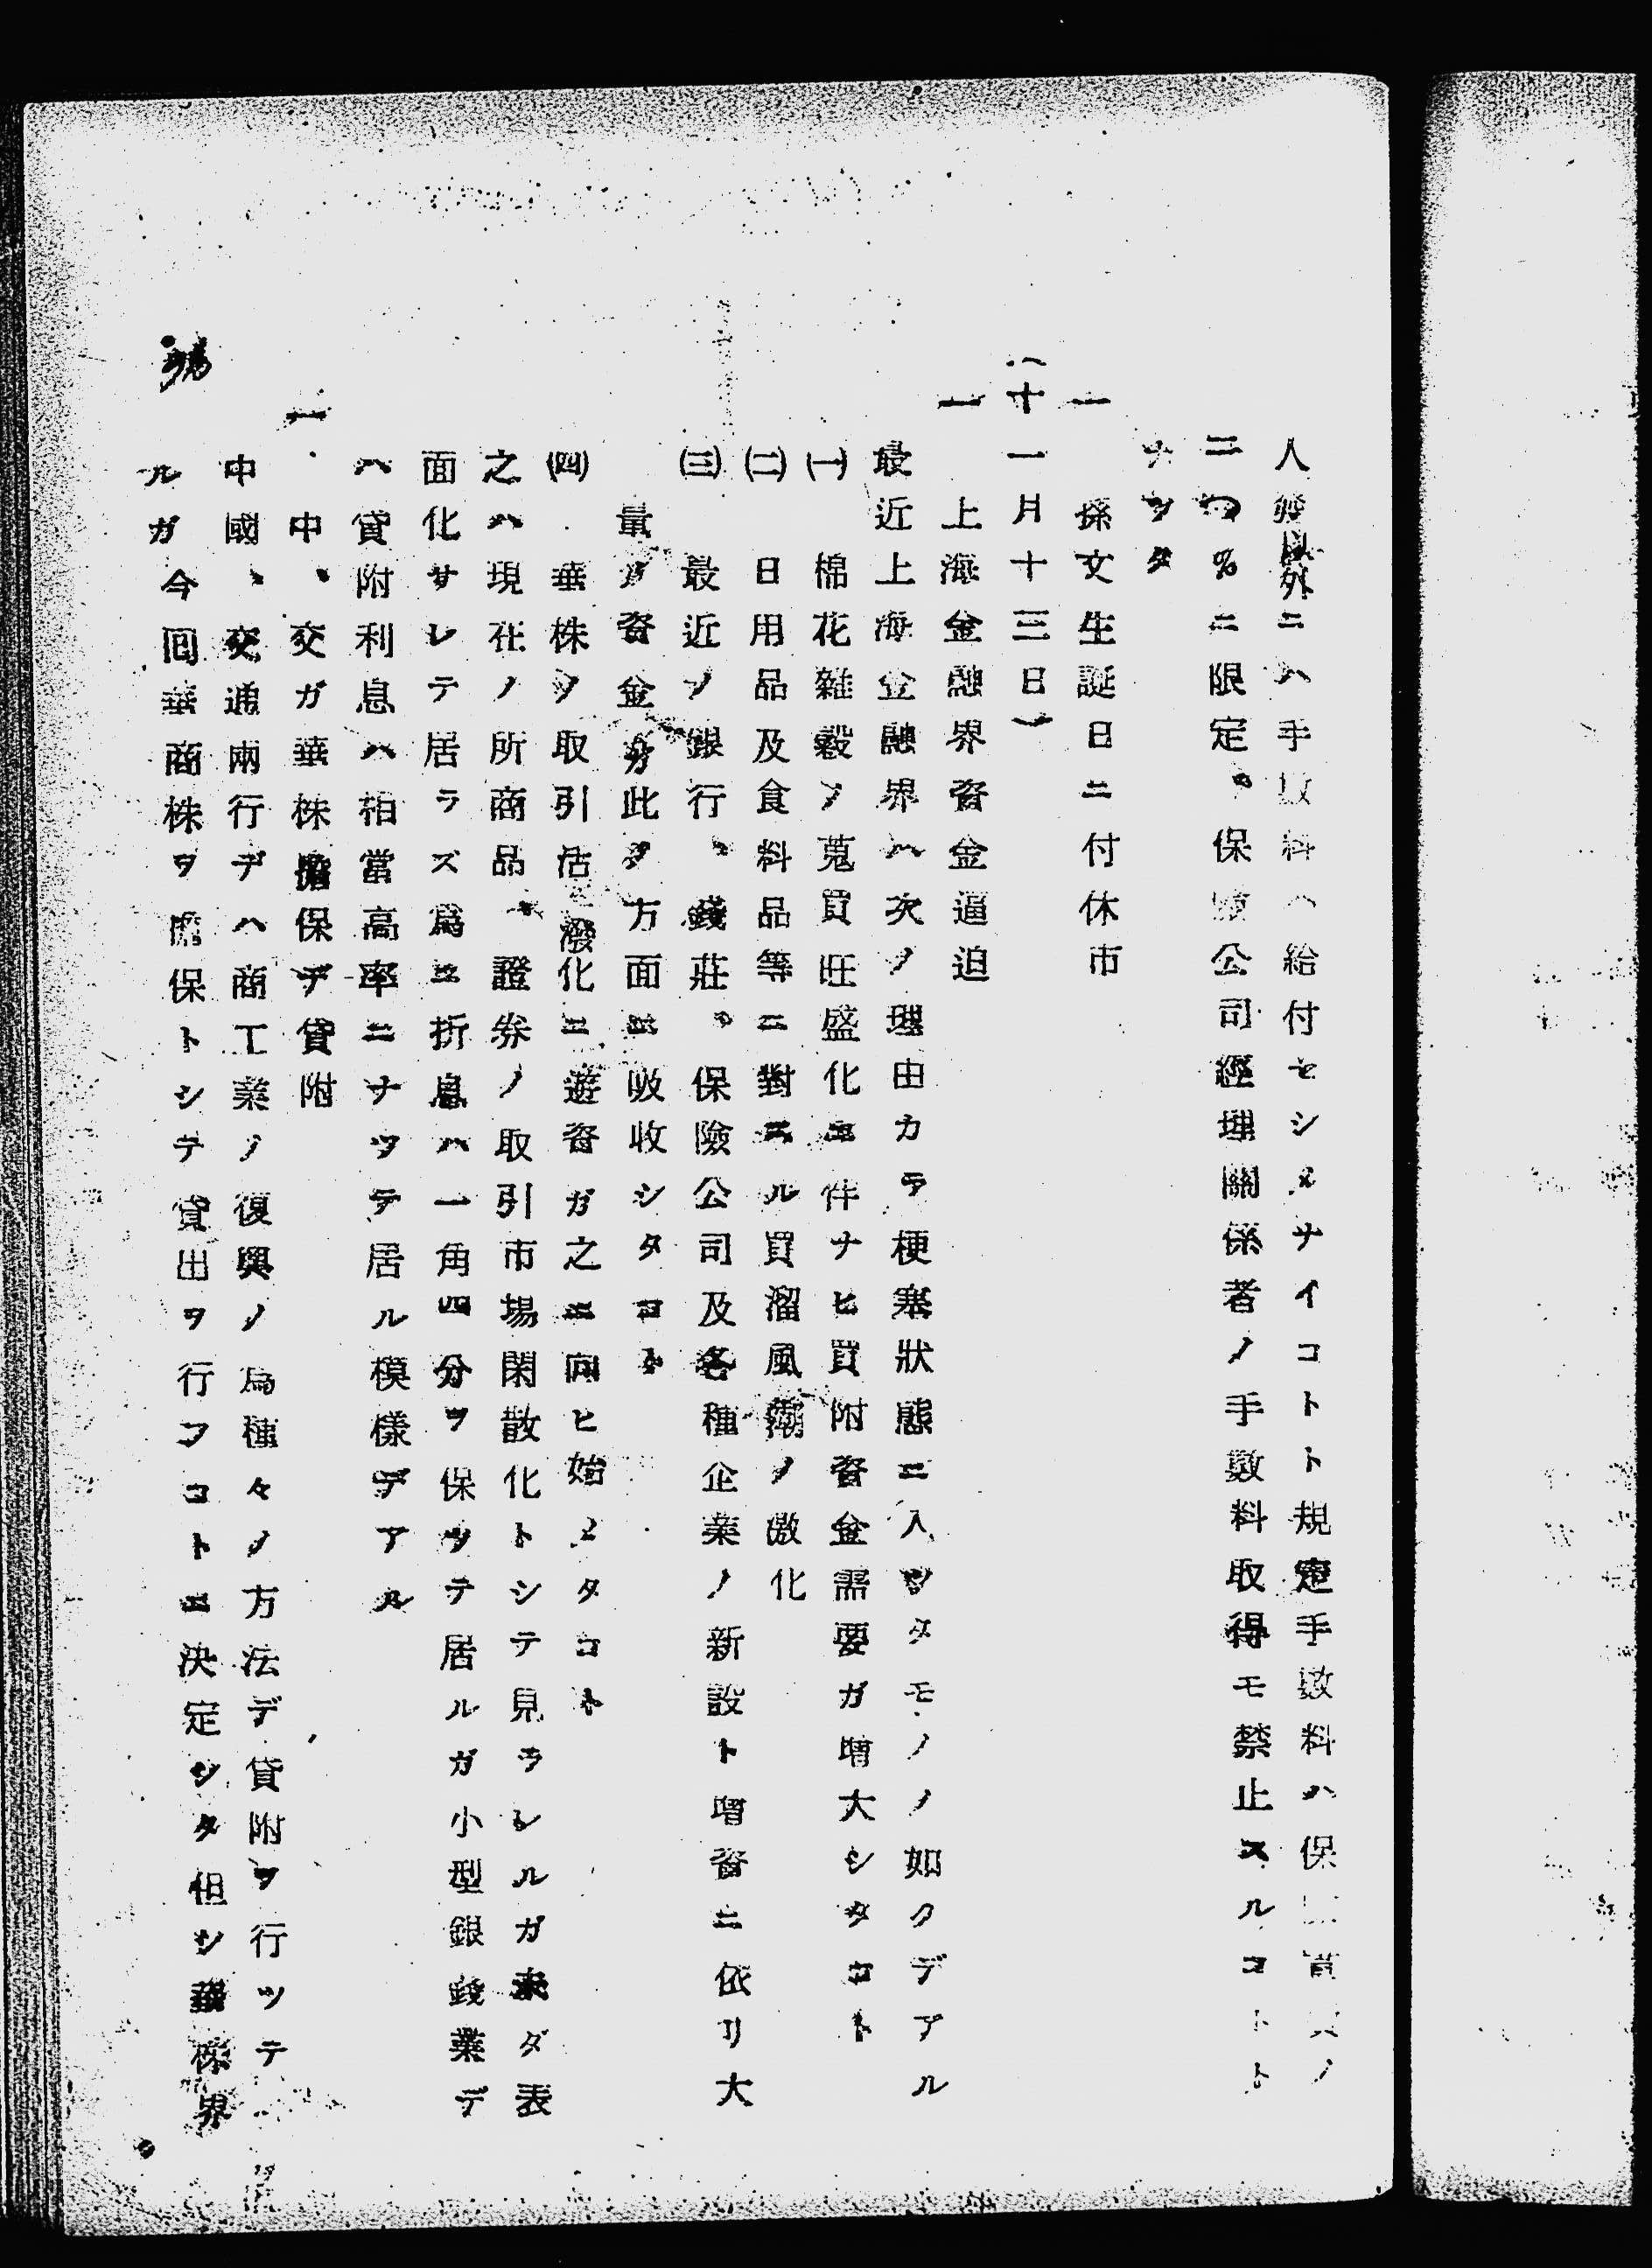 人以外ニハ手数料ハ給付セシメナイコトト規定手数料ハ保
二〇%ニ限定、保險公司經理關係者ノ手数料取得モ禁止スルコトト
ナツタ
一 孫文生誕日ニ付休市
(十一月十三日)
一 上海金融界資金逼迫
最近上海金融界ハ次ノ理由カラ梗塞狀態ニ入ツタモノノ如クデアル
(一) 棉花雜穀ノ蒐買旺盛化ニ伴ナヒ買附資金需要ガ増大シタコト
(二) 日用品及食料品等ニ對スル買溜風潮ノ激化
(三) 最近ノ銀行、錢莊、保險公司及各種企業ノ新設ト增資ニ依リ大
量ノ資金ガ此ノ方面ニ吸收シタコト
(四) 華株ノ取引活潑化ニ遊資ガ之ニ向ヒ始メタコト
之ハ現在ノ所商品、證券ノ取引市場閑散化トシテ見ラレルガ未ダ表
面化サレテ居ラズ爲ニ折息ハ一角四分ヲ保ツテ居ルガ小型銀錢業デ
ハ貸附利息ハ相當高率ニナツテ居ル模樣デアル
一、中、交ガ華株擔保デ貸附
中國、交通兩行デハ商工業ノ復興ノ爲種々ノ方法デ貸附ヲ行ツテ
ルガ今回華商株ヲ擔保トシテ貸出ヲ行フコトニ決定シタ但シ華株界